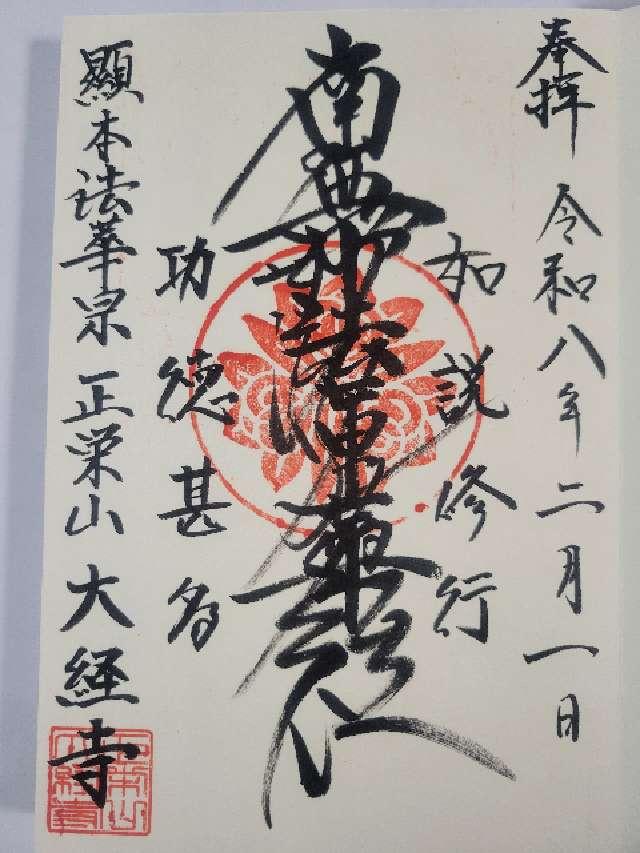 奉拝 令和八年二月一日
如説修行
南無妙法蓮華経
功徳甚多
顕本法華宗 正栄山 大経寺